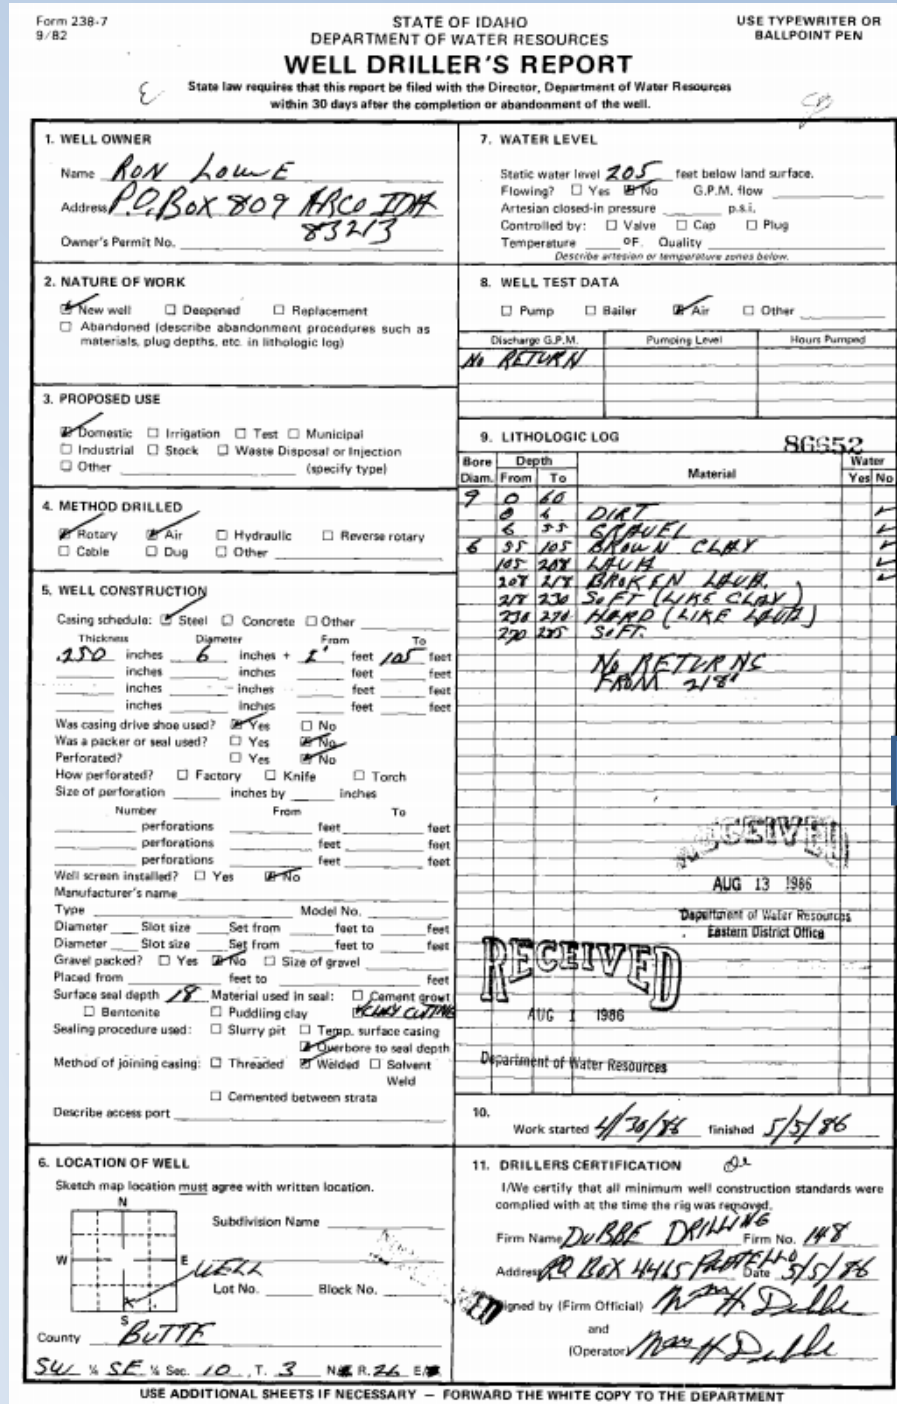 Form 238-7
9/82
STATE OF IDAHO
DEPARTMENT OF WATER RESOURCES
USE TYPEWRITER OR
BALLPOINT PEN
WELL DRILLER'S REPORT
State law requires that this report be filed with the Director, Department of Water Resources
within 30 days after the completion or abandonment of the well.
1. WELL OWNER
Name RON LOWE
Address P.O. BOX 809 ARCO IDA
83213
Owner's Permit No.
2. NATURE OF WORK
New well Deepened Replacement
Abandoned (describe abandonment procedures such as
materials, plug depths, etc. in lithologic log)
3. PROPOSED USE
Domestic Irrigation Test Municipal
Industrial Stock Waste Disposal or Injection
Other (specify type)
4. METHOD DRILLED
Rotary Air Hydraulic Reverse rotary
Cable Dug Other
5. WELL CONSTRUCTION
Casing schedule: Steel Concrete Other
Thickness Diameter From To
.250 inches 6 inches + 1' feet 105 feet
inches inches feet feet
inches inches feet feet
inches inches feet feet
Was casing drive shoe used? Yes No
Was a packer or seal used? Yes No
Perforated? Yes No
How perforated? Factory Knife Torch
Size of perforation inches by inches
Number From To
perforations feet feet
perforations feet feet
perforations feet feet
Well screen installed? Yes No
Manufacturer's name
Type Model No.
Diameter Slot size Set from feet to feet
Diameter Slot size Set from feet to feet
Gravel packed? Yes No Size of gravel
Placed from feet to feet
Surface seal depth 18 Material used in seal: Cement grout
Bentonite Puddling clay CLAY CUTING
Sealing procedure used: Slurry pit Temp. surface casing
Overbore to seal depth
Method of joining casing: Threaded Welded Solvent
Weld
Cemented between strata
Describe access port
6. LOCATION OF WELL
Sketch map location must agree with written location.
N
Subdivision Name
W E WELL
Lot No. Block No.
S
County BUTTE
SW ¼ SE ¼ Sec. 10, T. 3 N R. 26 E
7. WATER LEVEL
Static water level 205 feet below land surface.
Flowing? Yes No G.P.M. flow
Artesian closed-in pressure p.s.i.
Controlled by: Valve Cap Plug
Temperature °F. Quality
Describe artesian or temperature zones below.
8. WELL TEST DATA
Pump Bailer Air Other
Discharge G.P.M. Pumping Level Hours Pumped
NO RETURN
9. LITHOLOGIC LOG 86652
Bore Depth Water
Diam. From To Material Yes No
9 0 60
0 6 DIRT
6 55 GRAVEL
6 55 105 BROWN CLAY
105 208 LAVA
208 218 BROKEN LAVA
218 230 SOFT (LIKE CLAY)
230 270 HARD (LIKE LAVA)
270 285 SOFT.
NO RETURNS
FROM 218'
RECEIVED
AUG 13 1986
Department of Water Resources
Eastern District Office
RECEIVED
AUG 1 1986
Department of Water Resources
10.
Work started 4/30/86 finished 5/5/86
11. DRILLERS CERTIFICATION
I/We certify that all minimum well construction standards were
complied with at the time the rig was removed.
Firm Name DUBBE DRILLING Firm No. 148
Address P.O. BOX 4465 POCATELLO Date 5/5/86
Signed by (Firm Official)
and
(Operator)
USE ADDITIONAL SHEETS IF NECESSARY — FORWARD THE WHITE COPY TO THE DEPARTMENT